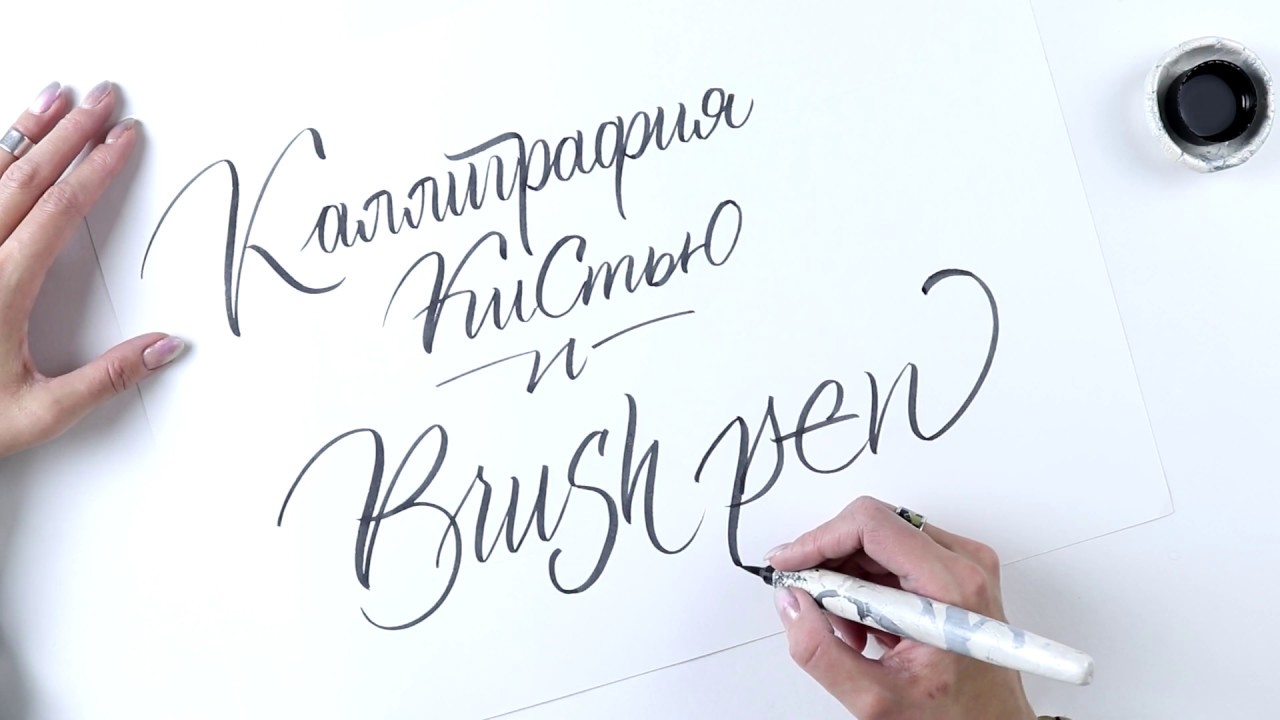 Каллиграфия
кистью
и
Brush pen